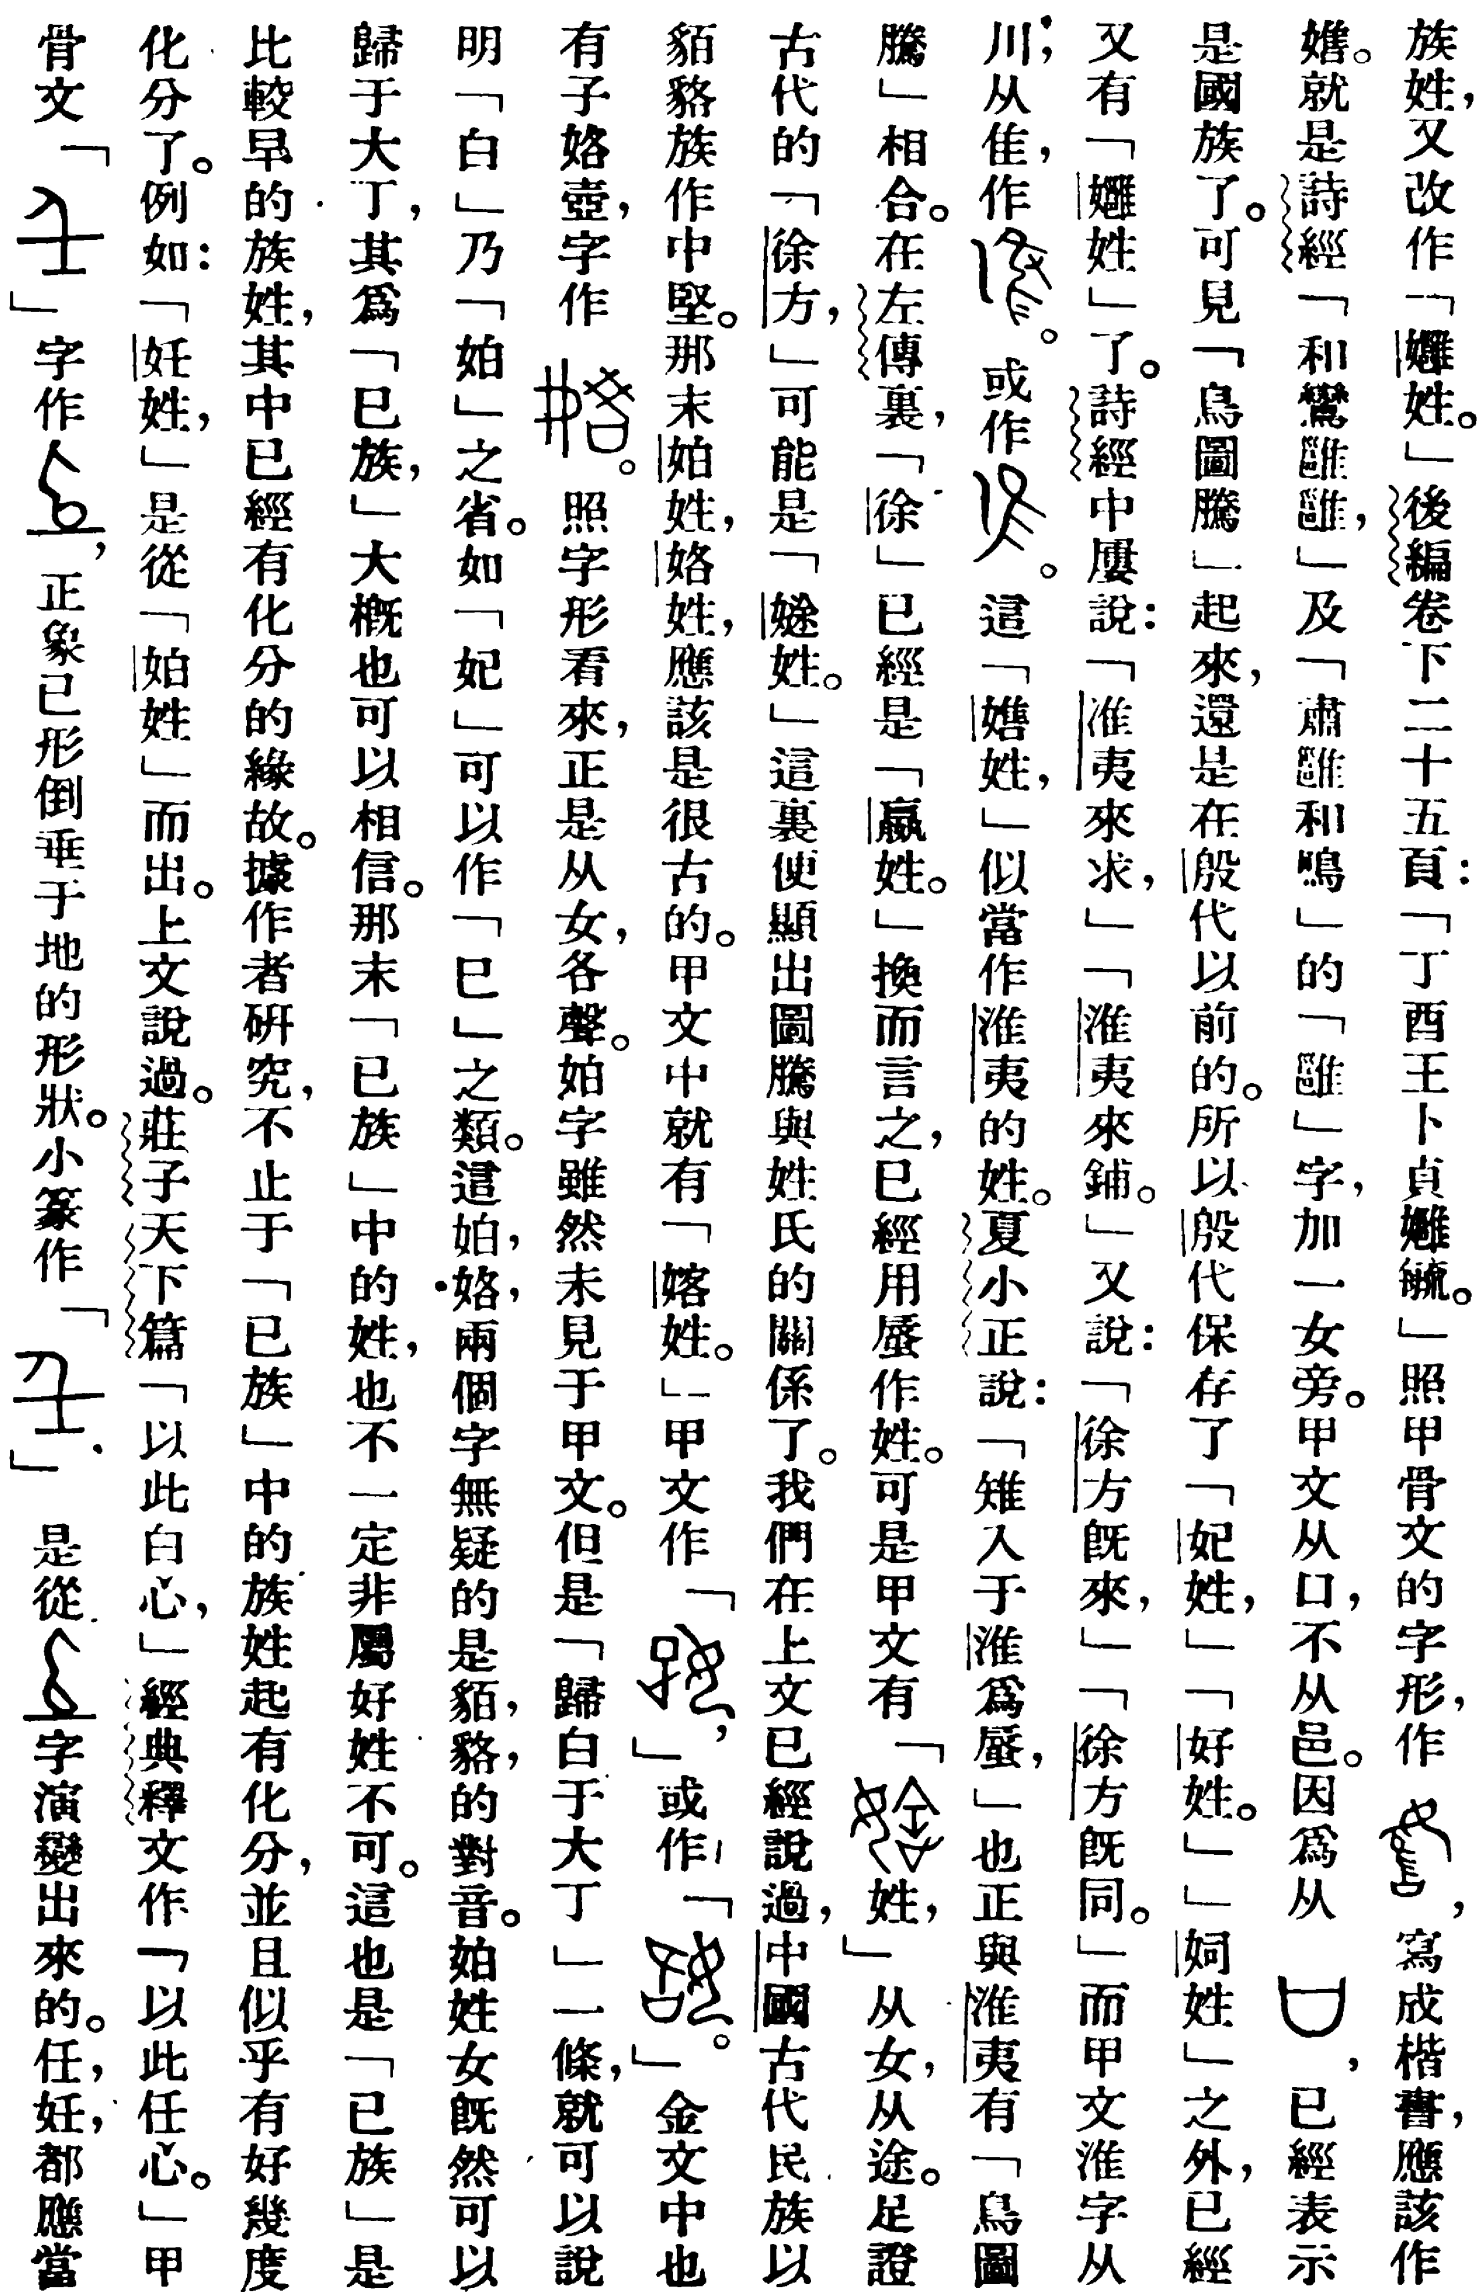 族姓，又改作「嶉姓。」後編卷下二十五頁：「丁酉王卜貞毓。」照甲骨文的字形，作，寫成楷書，應該作
。就是詩經「和鸞雝雝，」及「肅雝和鳴」的「雝」字，加一女旁。甲文从口，不从邑。因爲从，已經表示
是國族了。可見「鳥圖騰」起來，還是在殷代以前的。所以殷代保存了「妃姓，」「好姓。」」姛姓」之外，已經
又有「姓」了。詩經中屢說：「淮夷來求，」「淮夷來鋪。」又說：「徐方旣來，」「徐方旣同。」而甲文淮字从
川，从隹，作。或作。這「姓，」似當作淮夷的姓。夏小正說：「雉入于淮爲蜃，」也正與淮夷有「鳥圖
騰」相合。在左傳裏，「徐」已經是「嬴姓。」換而言之，已經用蜃作姓。可是甲文有「姓，」从女，从途。足證
古代的「徐方，」可能是「姓。」這裏便顯出圖騰與姓氏的關係了。我們在上文已經說過，中國古代民族以
貊貉族作中堅。那末妱姓，姡姓，應該是很古的。甲文中就有「姓。」甲文作「，」或作「。」金文中也
有子姳壺，字作。照字形看來，正是从女，各聲。妱字雖然未見于甲文。但是「歸白于大丁」一條，就可以說
明「白」乃「妱」之省。如「妃」可以作「巳」之類。這妱，姳，兩個字無疑的是貊，貉，的對音。妱姓女旣然可以
歸于大丁，其爲「巳族，」大槪也可以相信。那末「巳族」中的姓，也不一定非屬好姓不可。這也是「巳族」是
比較早的族姓，其中已經有化分的緣故。據作者硏究，不止于「巳族」中的族姓起有化分，並且似乎有好幾度
化分了。例如：「妊姓，」是從「妱姓」而出。上文說過。莊子天下篇「以此白心，」經典釋文作「以此任心。」甲
骨文「」字作，正象已形倒垂于地的形狀。小篆作「」是從字演變出來的。任，妊，都應當